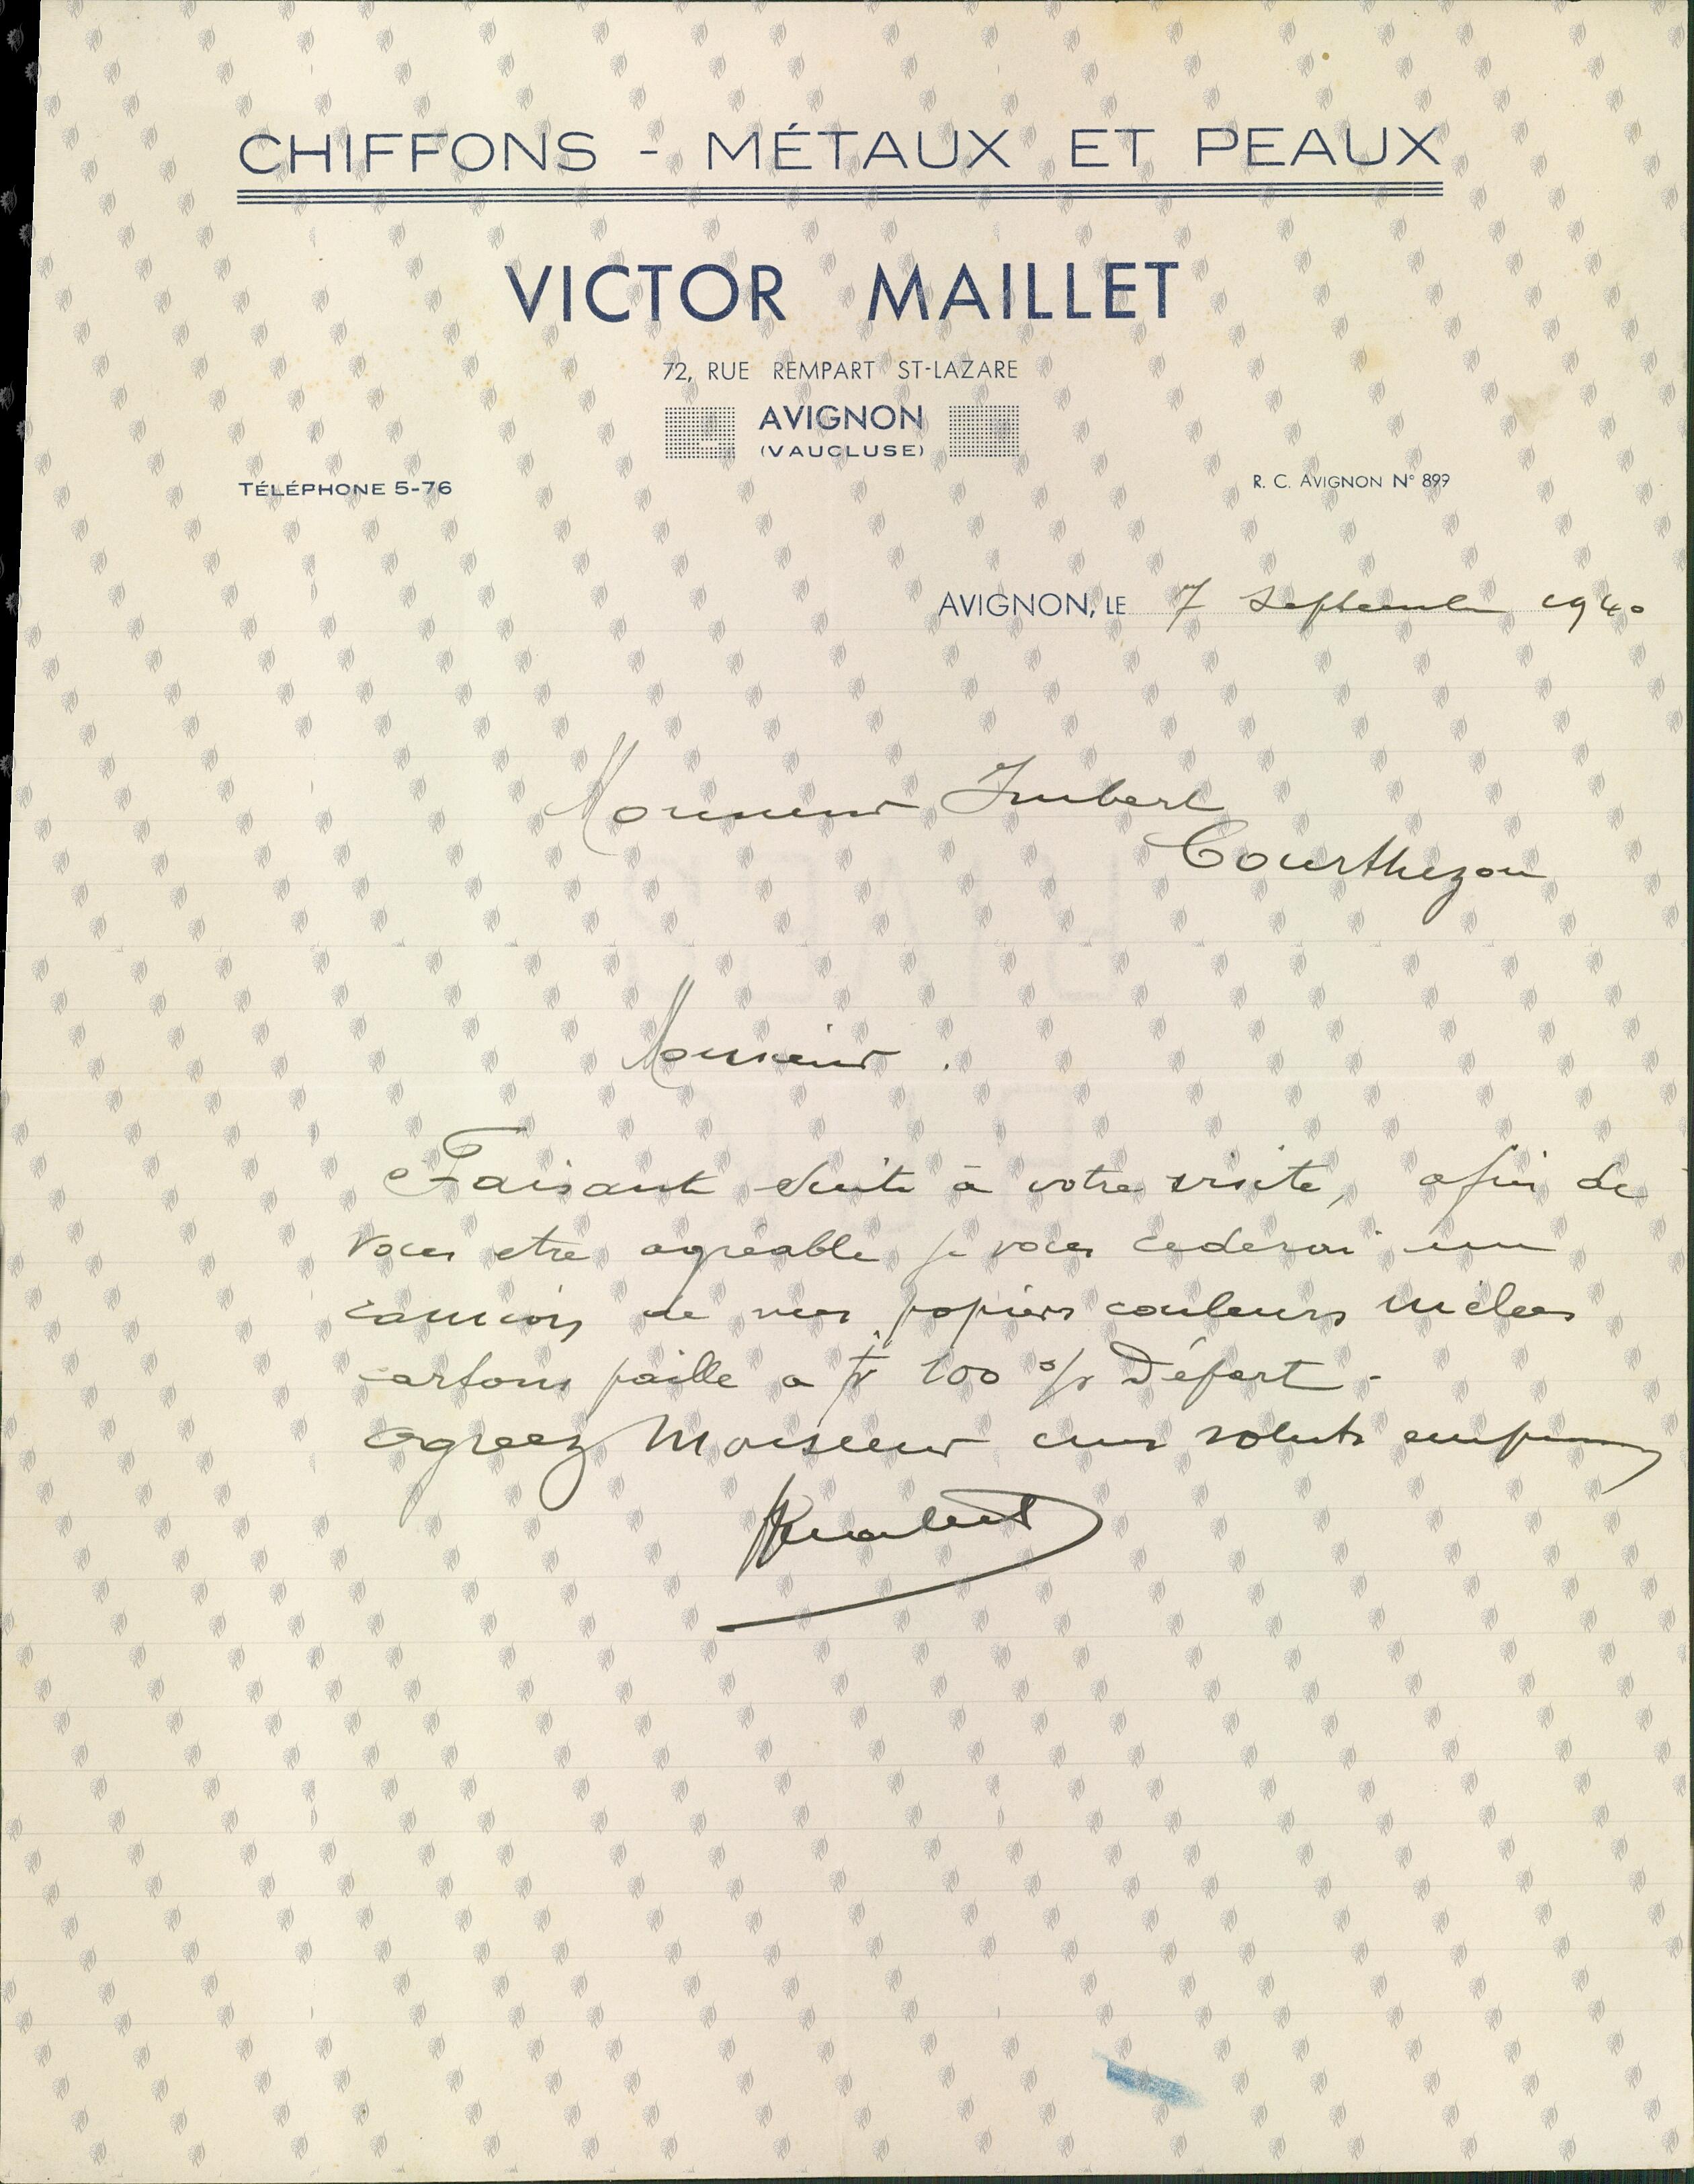 CHIFFONS - MÉTAUX ET PEAUX
VICTOR MAILLET
72, RUE REMPART ST-LAZARE
AVIGNON
(VAUCLUSE)
TÉLÉPHONE 5-76
R. C. AVIGNON N° 899
AVIGNON, LE 7 Septembre 1940
Monsieur Imbert
Courthezon
Monsieur.
Faisant suite à votre visite, afin de
vous etre agréable je vous cederai un
camion de mes papiers couleurs mélés
cartons paille a fr 100 % Départ -
agreez Monsieur mes saluts